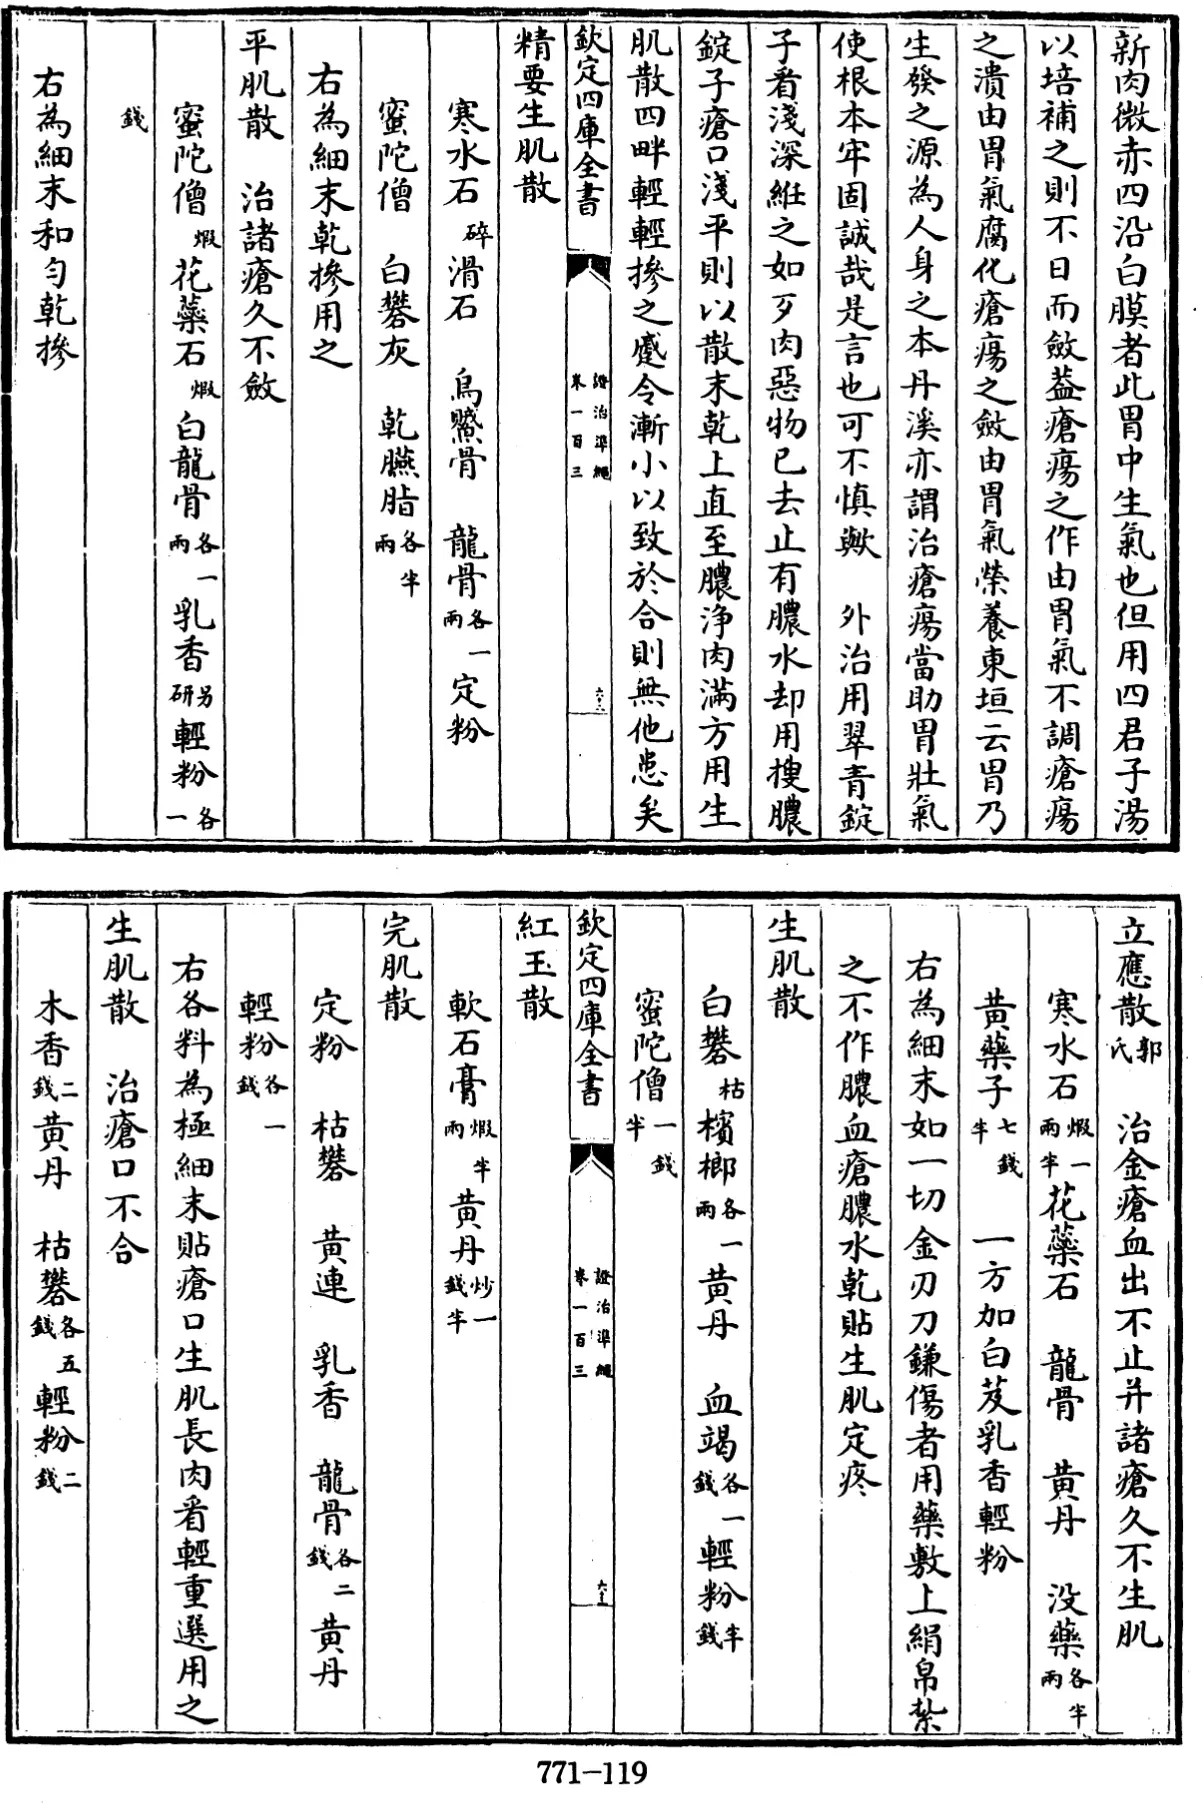 新肉微赤四沿白膜者此胃中生氣也但用四君子湯
以培補之則不日而斂葢瘡瘍之作由胃氣不調瘡瘍
之潰由胃氣腐化瘡瘍之斂由胃氣榮養東垣云胃乃
生發之源為人身之本丹溪亦謂治瘡瘍當助胃壯氣
使根本牢固誠哉是言也可不慎歟 外治用翠青錠
子看淺深絍之如歹肉惡物已去止有膿水却用搜膿
錠子瘡口淺平則以散末乾上直至膿淨肉滿方用生
肌散四畔輕輕摻之蹙令漸小以致於合則無他患矣
欽定四庫全書 證治準繩 卷一百三
精要生肌散
寒水石碎滑石 烏鰂骨 龍骨各一兩定粉
蜜陀僧 白礬灰 乾臙脂各半兩
右為細末乾摻用之
平肌散 治諸瘡久不斂
蜜陀僧煅花蘂石煅白龍骨各一兩乳香另研輕粉各一
錢
右為細末和勻乾摻
立應散郭氏 治金瘡血出不止并諸瘡久不生肌
寒水石煅一兩半花蘂石 龍骨 黃丹 没藥各半兩
黃藥子七錢半 一方加白芨乳香輕粉
右為細末如一切金刃刀鎌傷者用藥敷上絹帛紮
之不作膿血瘡膿水乾貼生肌定疼
生肌散
白礬枯檳榔各一兩黃丹 血竭各一錢輕粉半錢
蜜陀僧一錢半
欽定四庫全書 證治準繩 卷一百三
紅玉散
軟石膏煅半兩黃丹炒一錢半
完肌散
定粉 枯礬 黃連 乳香 龍骨各二錢黃丹
輕粉各一錢
右各料為極細末貼瘡口生肌長肉看輕重選用之
生肌散 治瘡口不合
木香二錢黃丹 枯礬各五錢輕粉二錢
771-119